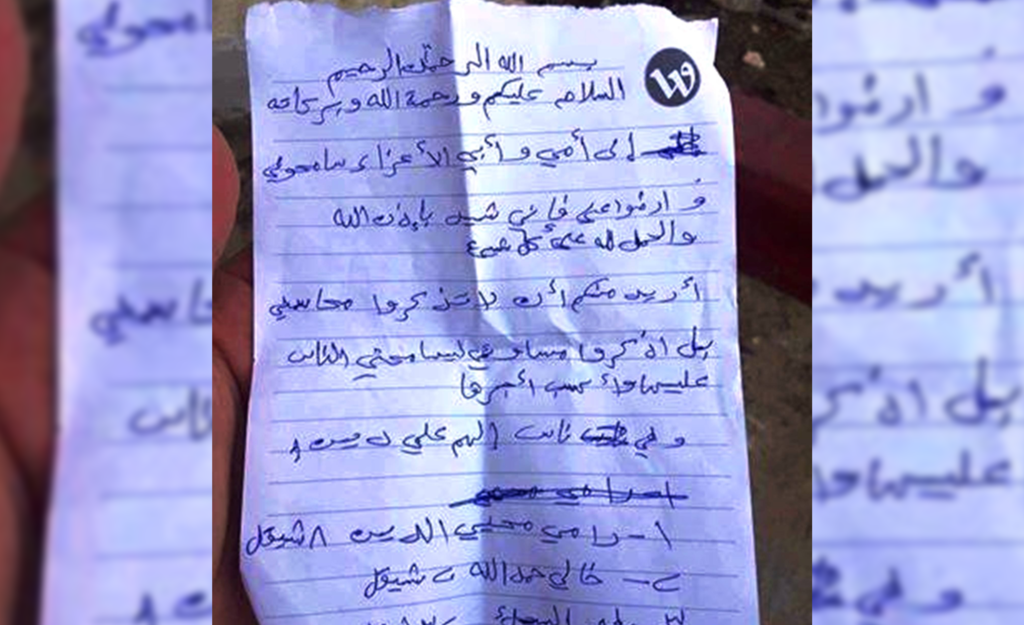 بسم الله الرحمن الرحيم
السلام عليكم ورحمة الله وبركاته
إلى أمي وأبي الأعزاء سامحوني
وارضوا عني فإني شهيد بإذن الله
والحمد لله على كل شيء
أريد منكم أن لا تذكروا محاسني
بل اذكروا مساوئي ليسامحني الناس
عليها وأكسب أجرها
وفي ناس إلهم علي دين ٨
١- رامي محيي الدين ٨ شيقل
٢- خالي حمد الله ٢ شيقل